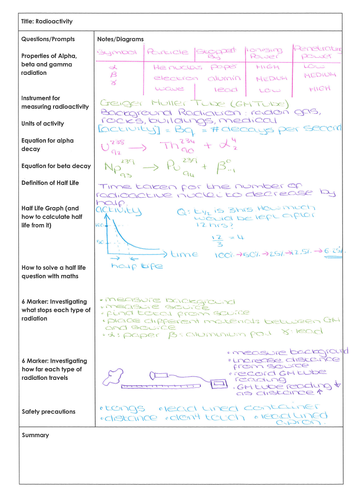 Title: Radioactivity
Questions/Prompts
Notes/Diagrams
Properties of Alpha, beta and gamma radiation
Symbol Particle Stopped By Ionising Power Penetrating Power
α He nucleus paper HIGH LOW
β electron alumin MEDIUM MEDIUM
γ wave lead LOW HIGH
Instrument for measuring radioactivity
Geiger Muller Tube (GM Tube)
Background Radiation: radon gas,
rocks, buildings, medical
Units of activity
[activity] = Bq = # decays per second
Equation for alpha decay
U 238 92 → Th 234 90 + α 4 2
Equation for beta decay
Np 239 93 → Pu 239 94 + β 0 -1
Definition of Half Life
Time taken for the number of
radioactive nuclei to decrease by
half.
Half Life Graph (and how to calculate half life from it)
activity
time
half life
Q: t½ is 3hs how much
would be left after
12 hrs?
12/3 = 4
How to solve a half life question with maths
6 Marker: Investigating what stops each type of radiation
• measure background
• measure source
• find total from source
• place different materials between GM
and source
• α: paper β: aluminium foil γ: lead
6 Marker: Investigating how far each type of radiation travels
• measure background
• increase distance
from source
• record GM tube
reading
• GM tube reading ↓
as distance ↑
Safety precautions
• tongs • lead lined container
• distance • don't touch • lead lined
apron
Summary